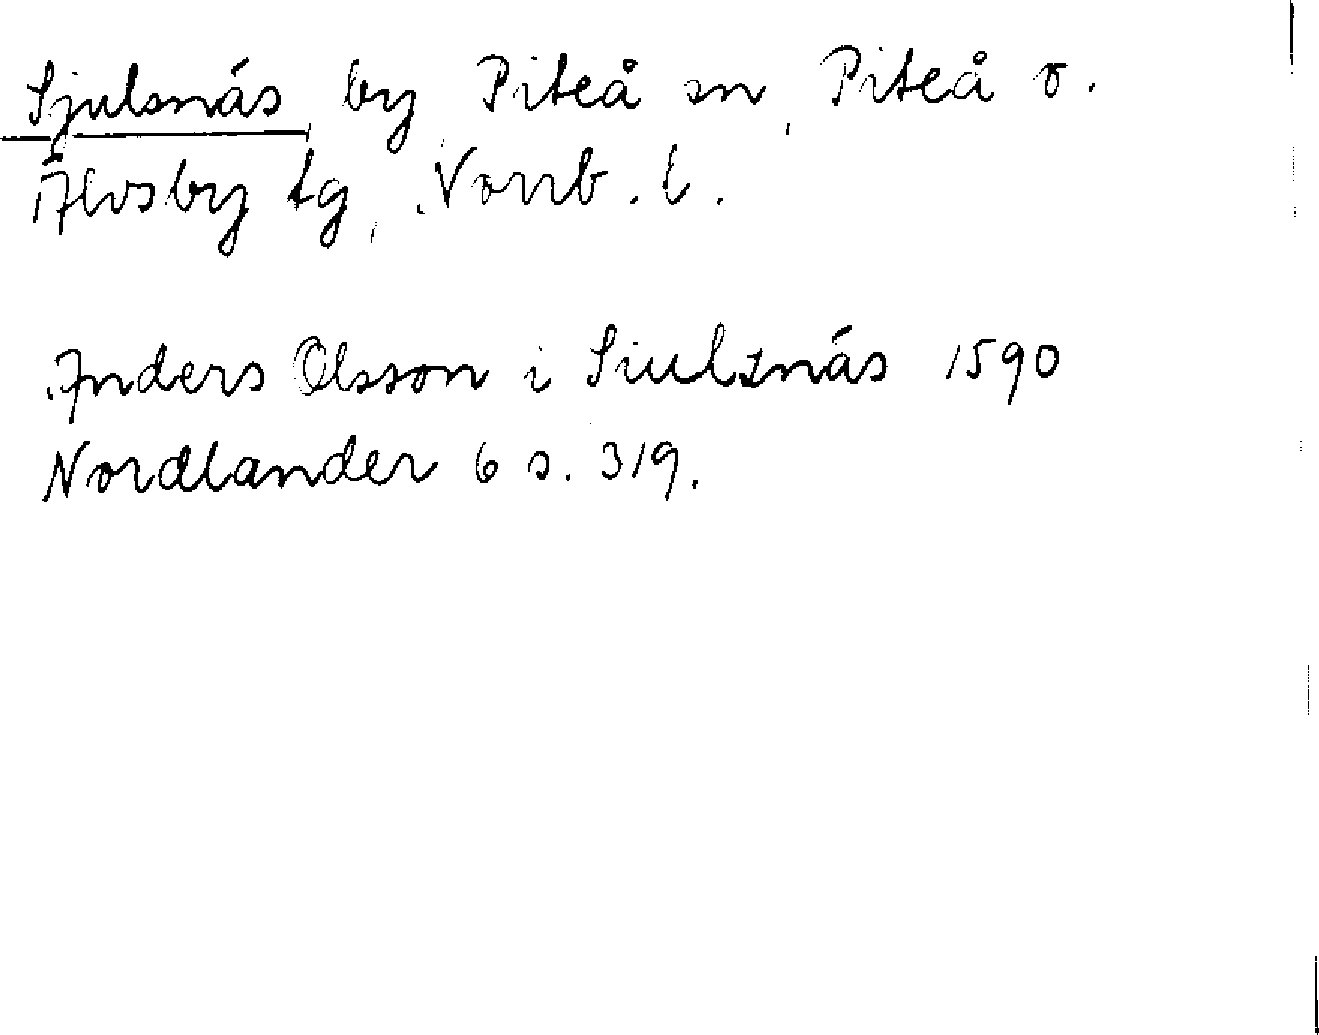 Sjulsnäs by Piteå sn, Piteå o.
Älvsby tg, Norrb. l.
Anders Olsson i Siulsnäs 1590
Nordlander 6 s. 319.